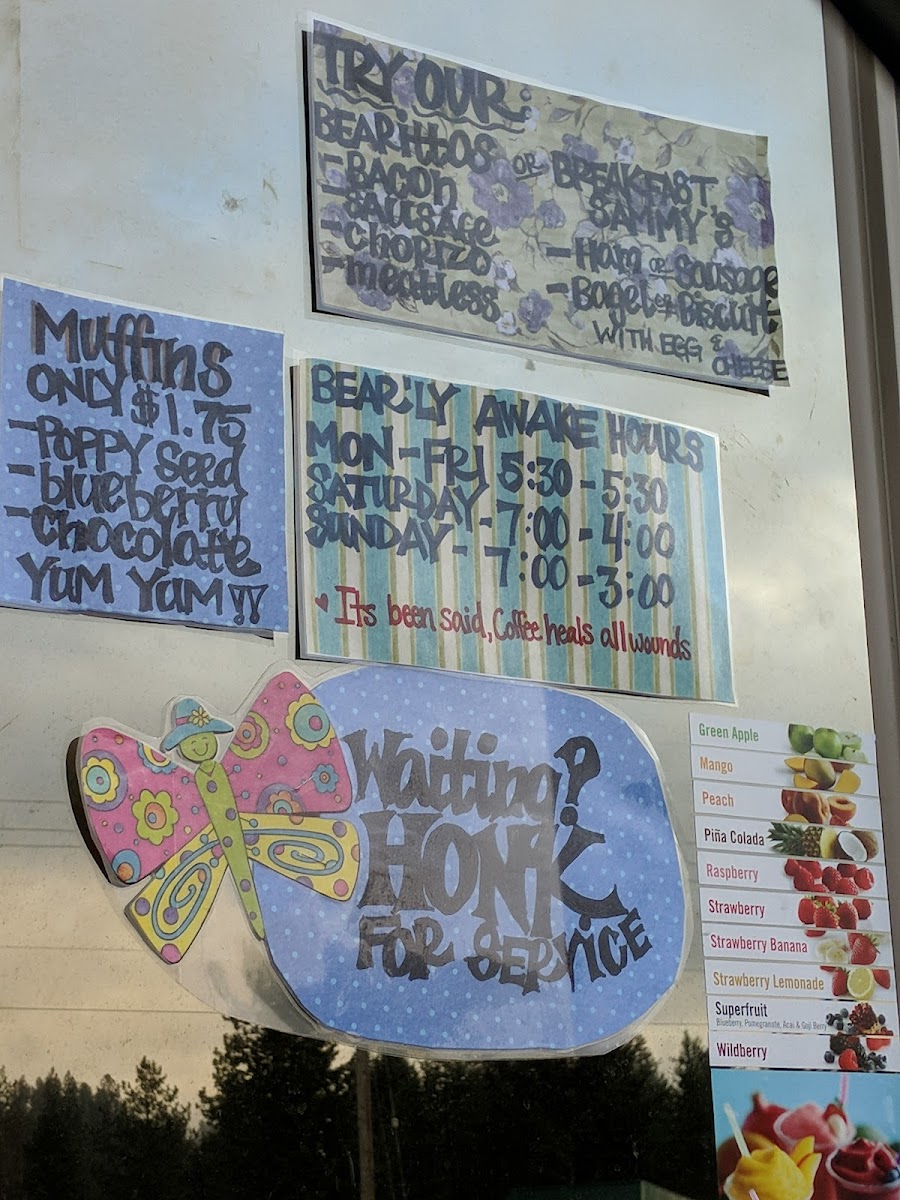 TRY OUR:
BEARittOS OR BREAKFAST SAMMY'S
-BACON
-SAUSAGE
-CHORIZO
-meatless
-Ham OR Sausage
-Bagel OR Biscuit
WITH EGG & CHEESE
Muffins
ONLY $1.75
-POPPY Seed
-blueberry
-chocolate
YUM YUM!!
BEAR'LY AWAKE HOURS
MON-FRI 5:30-5:30
SATURDAY-7:00-4:00
SUNDAY-7:00-3:00
Its been said, Coffee heals all wounds
Waiting?
HONK
FOR SERVICE
Green Apple
Mango
Peach
Piña Colada
Raspberry
Strawberry
Strawberry Banana
Strawberry Lemonade
Superfruit
Blueberry, Pomegranate, Acai & Goji Berry
Wildberry